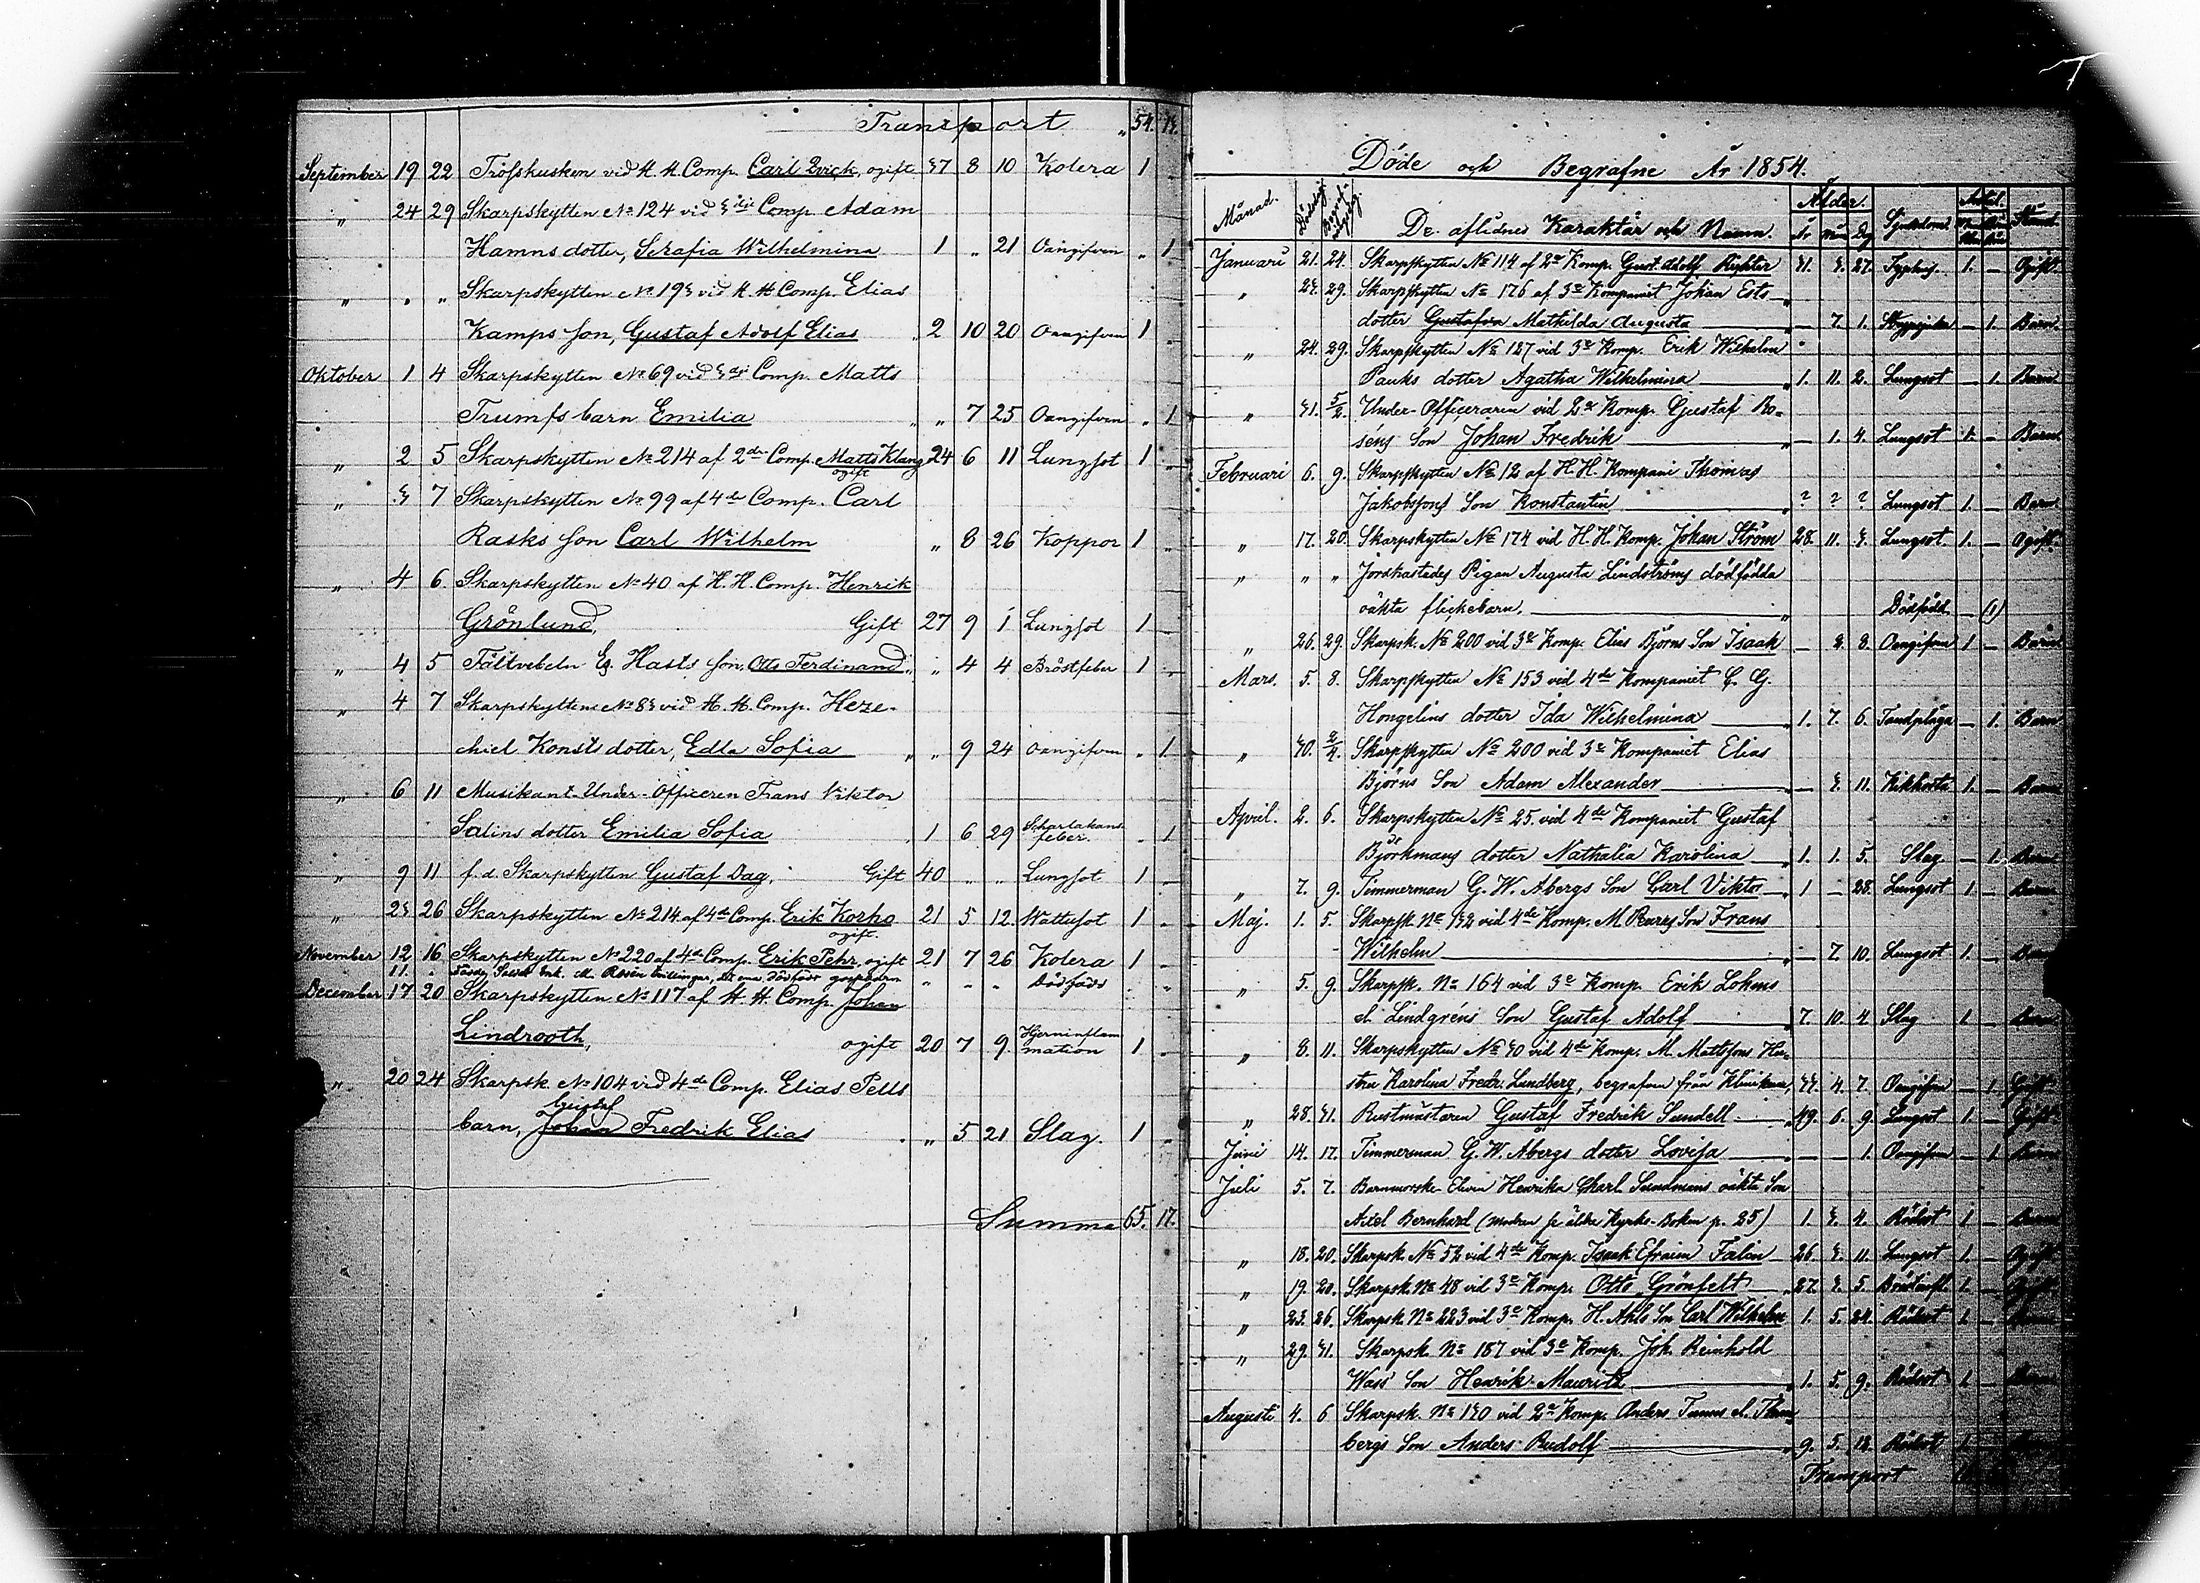 Transport „ 54. 14.
September 19 22 Trosskusken vid H. H. Comp. Carl Qvick, ogift 37 8 10 Kolera 1 „
„ 24 29 Skarpskytten No 124 vid 3die Comp Adam
Hamns dotter, Serafia Wilhelmina 1 „ 21 Oangifven „ 1
„ „ „ Skarpskytten No 193 vid H. H Comp. Elias
Kamps son, Gustaf Adolf Elias „ 2 10 20 Oangifven 1 „
Oktober 1 4 Skarpskytten No 69 vid 3die Comp. Matts
Trumfs barn Emilia „ „ 7 25 Oangifven „ 1
„ 2 5 Skarpskytten No 214 af 2dra Comp. Matts Klang 24 6 11 Lungsot 1 „
ogift
„ 3 7 Skarpskytten No 99 af 4de Comp. Carl
Rasks son Carl Wilhelm „ 8 26 Koppor 1 „
„ 4 6. Skarpskytten No 40 af H. H. Comp. Henrik
Grönlund, Gift 27 9 1 Lungsot 1 „
„ 4 5 Fältvebeln Hasts son, Otto Ferdinand „ „ 4 4 Bröstfeber 1 „
„ 4 7 Skarpskyttens No 83 vid H. H. Comp. Heze-
chiel Konsts dotter, Edla Sofia „ „ 9 24 Oangifven „ 1
„ 6 11 Musikant-Under-Officeren Frans Viktor
Salins dotter Emilia Sofia „ 1 6 29 Scharlakans feber. „ 1
„ 9 11 f. d. Skarpskytten Gustaf Dag, Gift 40 „ „ Lungsot 1 „
„ 23 26 Skarpskytten No 214 af 4de Comp. Erik Korho 21 5 12. Wattusot 1 „
ogift.
November 12 16 Skarpskytten No 220 af 4de Comp. Erik Pehr, ogift 21 7 26 Kolera 1 „
11. „ Enk. M. Rosén „ „ „ Dödfödd „ „
December 17 20 Skarpskytten No 117 af H. H. Comp. Johan
Lindrooth, ogift 20 7 9. Hjerninflam mation 1 „
„ 20 24 Skarpsk. No 104 vid 4de Comp. Elias Pells
Gustaf
barn, Johan Fredrik Elias „ „ 5 21 Slag. 1 „
Summa 65. 17.
Döde och Begrafne År 1854.
Månad. De aflidnes Karaktär och Namn. Ålder. År Mån Dag Sjukdom. Antal. Stånd
Januari 21. 24. Skarpskytten No 114 af 2a Komp. Gust. Adolf Richter 31. 3. 27. Typhus. 1. — Ogift.
„ 23. 29. Skarpskytten No 176 af 3e Kompaniet Johan Ests
dotter Gustafva Mathilda Augusta — 7. 1. — 1. Barn
„ 24. 29. Skarpskytten No 187 vid 3e Komp. Erik Wilhelm
Pauks dotter Agatha Wilhelmina 1. 11. 2. Lungsot — 1. Barn
„ 31. 5/2. Under-Officeraren vid 2a Komp. Gustaf Ro-
séns Son Johan Fredrik — 1. 4. Lungsot 1. — Barn
Februari 6. 9. Skarpskytten No 12 af H. H. Kompani Thomas
Jakobssons Son Konstantin ? ? ? Lungsot 1. — Barn
„ 17. 20. Skarpskytten No 174 vid H. H. Komp. Johan Ström 28. 11. 3. Lungsot 1. — Ogift.
„ „ „ Jordkastades Pigan Augusta Lindströms dödfödda
oäkta flickebarn. Dödfödd — (1)
„ 26. 29. Skarpsk. No 200 vid 3e Komp. Elias Björns Son Isaak — 2. 8. Oangifven 1 — Barn
Mars. 5. 8. Skarpskytten No 153 vid 4de Kompaniet C. G.
Hongelins dotter Ida Wilhelmina 1. 7. 6. Tandplåga — 1. Barn
„ 30. 2/4. Skarpskytten No 200 vid 3e Kompaniet Elias
Björns Son Adam Alexander — 3. 11. Kikhosta 1. — Barn
April. 2. 6. Skarpskytten No 25. vid 4de Kompaniet Gustaf
Björkmans dotter Nathalia Karolina 1. 1. 5. Slag — 1. Barn
„ 7. 9. Timmerman G. W. Åbergs Son Carl Viktor 1 — 28. Lungsot 1. — Barn
Maj. 1. 5. Skarpsk. No 132 vid 4de Komp. M. Son Frans
Wilhelm — 7. 10. Lungsot 1. — Barn
„ 5. 9. Skarpsk. No 164 vid 3e Komp. Erik Lohms
el. Lindgréns Son Gustaf Adolf 7. 10. 4. Slag 1. — Barn
„ 8. 11. Skarpskytten No 30 vid 4de Komp. M. Mattssons Hu-
stru Karolina Fredr. Lundberg, begrafven från Kliniken, 33. 4. 7. Oangifven — 1. Gift
„ 28. 31. Rustmästaren Gustaf Fredrik Sundell 49. 6. 9. Lungsot 1. — Gift
Juni 14. 17. Timmerman G. W. Åbergs dotter Lovisa — — 1. Oangifven — 1. Barn
Juli 5. 7. Barnmorske-Eleven Henrika Charl. Sundmans oäkta Son
Axel Bernhard (modren se äldre Kyrko-Boken p. 25) 1. 3. 4. Rödsot 1 — Barn
„ 18. 20. Skarpsk. No 52 vid 4de Komp. Isaak Efraim Falin 26. 3. 11. Lungsot 1. — Ogift
„ 19. 20. Skarpsk. No 48 vid 3e Komp. Otto Grönfelt 27. 3. 5. 1. — Ogift
„ 23. 26. Skarpsk. No 223 vid 3e Komp. H. Ahls Son Carl Wilhelm 1. 5. 24. Rödsot 1. — Barn
„ 29. 31. Skarpsk. No 187 vid 3e Komp. Joh. Reinhold
Wass' Son Henrik Mauritz 1. 5. 9. Rödsot 1. — Barn
Augusti 4. 6 Skarpsk. No 130 vid 2a Komp. Anders
bergs Son Anders Rudolf 9. 5. 18. Rödsot 1. —
Transport